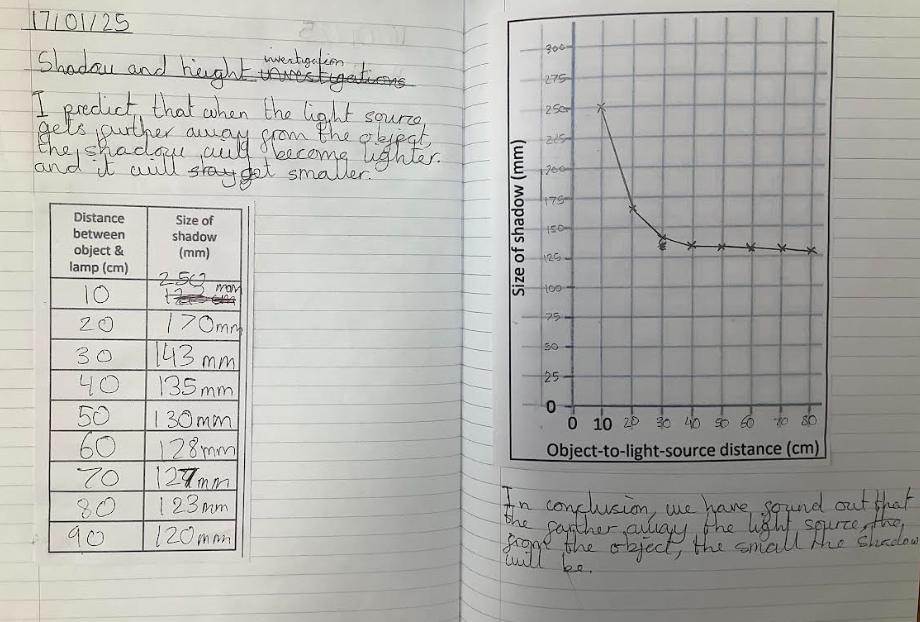 17/01/25
Shadow and height investigation
I predict that when the light source
gets further away from the object,
the shadow will become lighter.
and it will stay get smaller.
Distance between object & lamp (cm) Size of shadow (mm)
10 250 mm
20 170mm
30 143 mm
40 135mm
50 130mm
60 128mm
70 127mm
80 123mm
90 120mm
Size of shadow (mm)
300
275
250
225
200
175
150
125
100
75
50
25
0
0 10 20 30 40 50 60 70 80
Object-to-light-source distance (cm)
In conclusion, we have found out that
the farther away the light source, the
from the object, the small the shadow
will be.